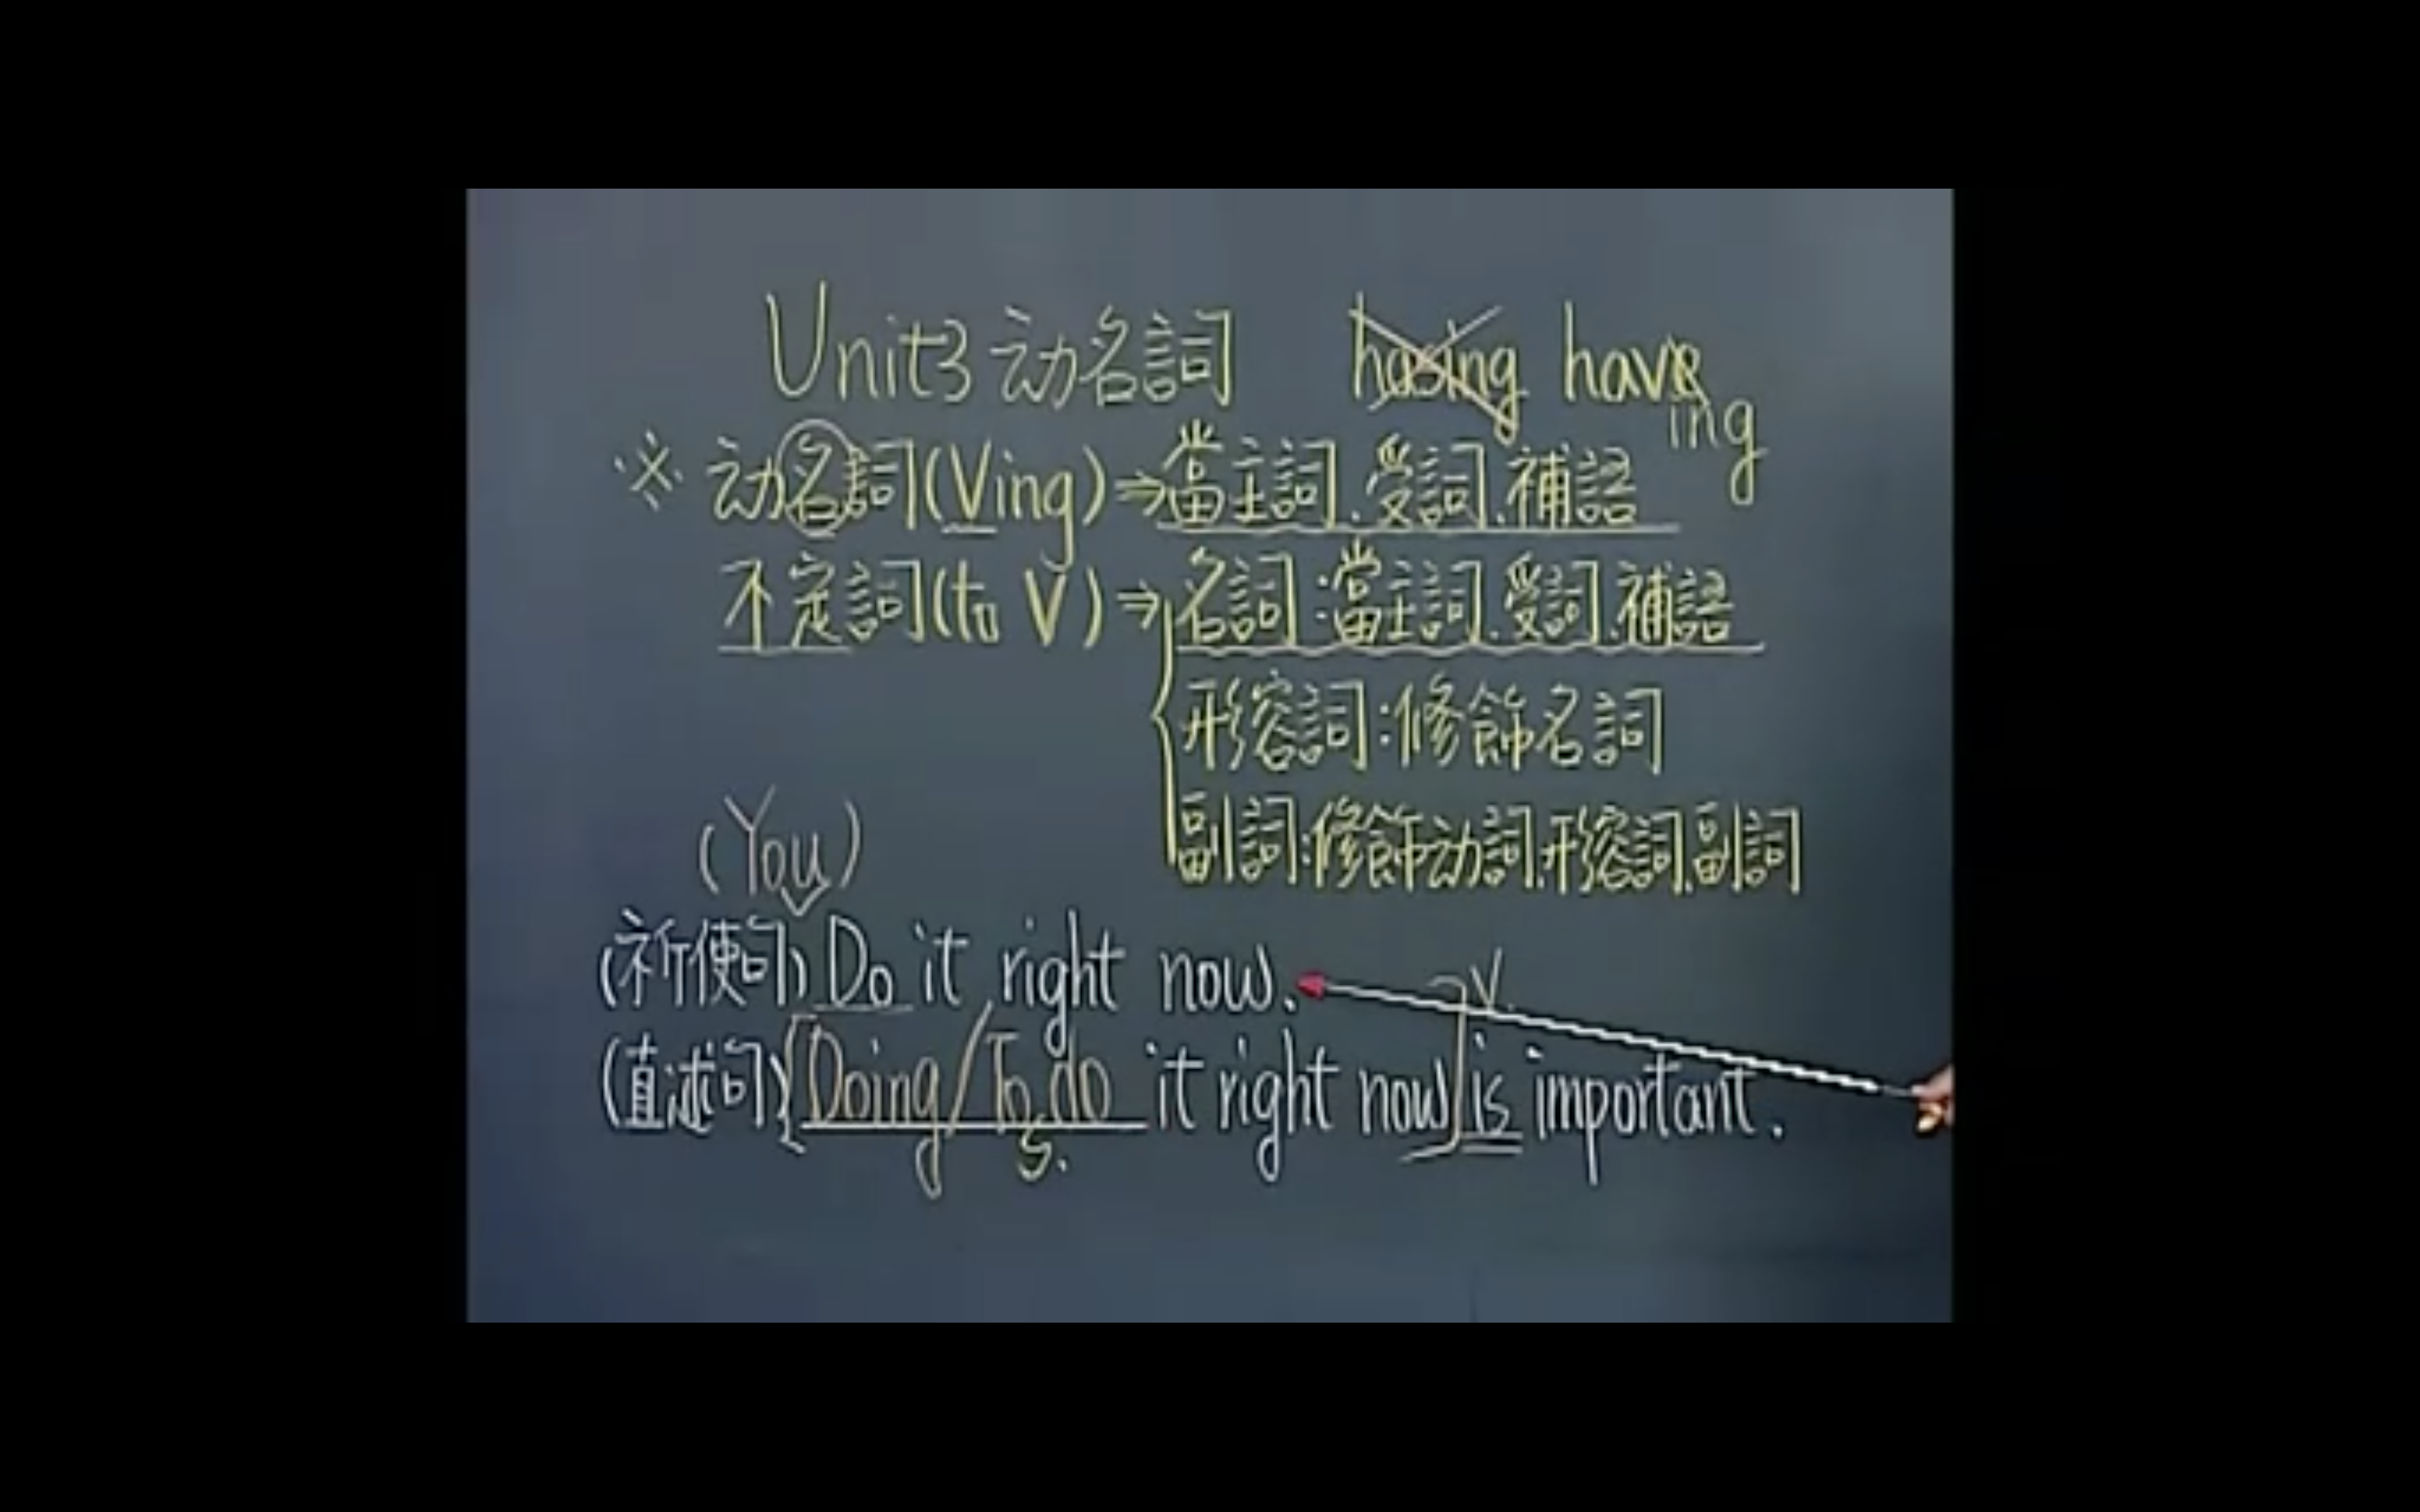 Unit3 动名詞 hasing having
※ 动名詞(Ving)⇒當主詞.受詞.補語
不定詞(to V)⇒名詞:當主詞.受詞.補語
形容詞:修飾名詞
副詞:修飾动詞.形容詞.副詞
(You)
(祈使句)Do it right now.
V.
(直述句)[Doing/To do it right now] is important.
S.